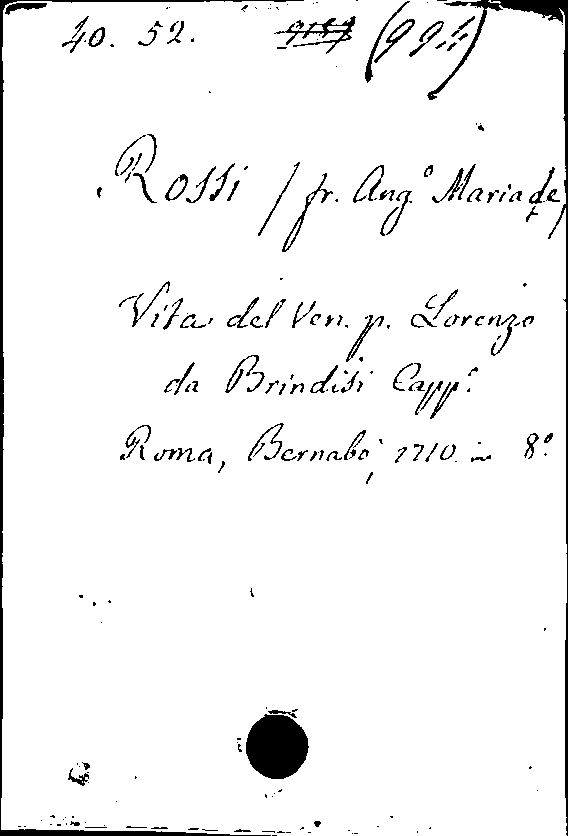 40. 52. (99
Rossi / fr. Ang.º Maria de'/
Vita del Ven. p. Lorenzo
da Brindisi Capp.º
Roma, Bernabò, 1710. in 8º.